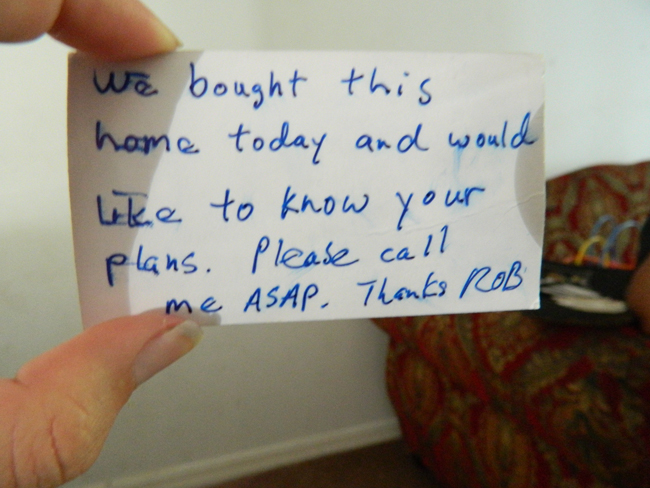 We bought this
home today and would
like to know your
plans. Please call
me ASAP. Thanks ROB